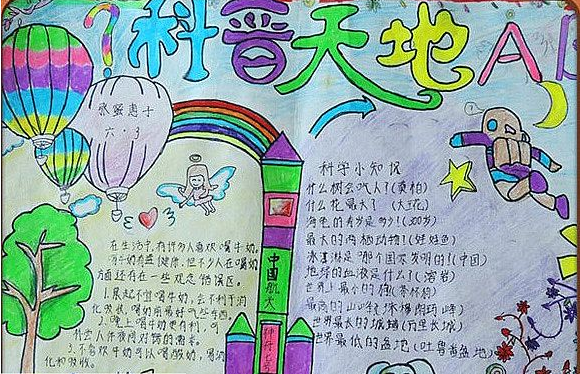 科普天地
A
六·3
在生活中,有许多人喜欢喝牛奶。
喝牛奶有益健康,但不少人在喝奶
方面还存在一些观念错误区。
1.晨起不宜喝牛奶,会不利于消
化吸收,喝奶前最好吃些东西。
2.晚上喝牛奶更有利,可
补充人体夜间对钙的需求。
3.不喜欢牛奶可以喝酸奶,
化和吸收。
中国航天
神舟七号
科学小知识
什么树会吃人?(奠柏)
什么花最大?(大王花)
海龟的寿岁是多少?(300岁)
最大的两栖动物!(娃娃鱼)
冰淇淋是哪个国家发明的!(中国)
地球的血液是什么?(熔岩)
世界上最小的
最高的山峰
世界最长的城墙(万里长城)
世界最低的盆地(吐鲁番盆地)